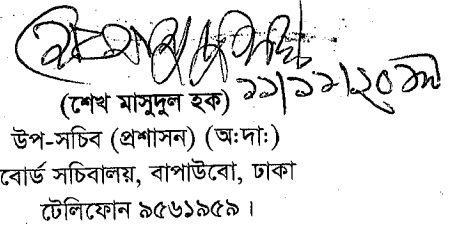 (শেখ মাসুদুল হক)
উপ-সচিব (প্রশাসন) (অ:দা:)
বোর্ড সচিবালয়, বাপাউবো, ঢাকা
টেলিফোন ৯৫৬১৯৫৯ ।